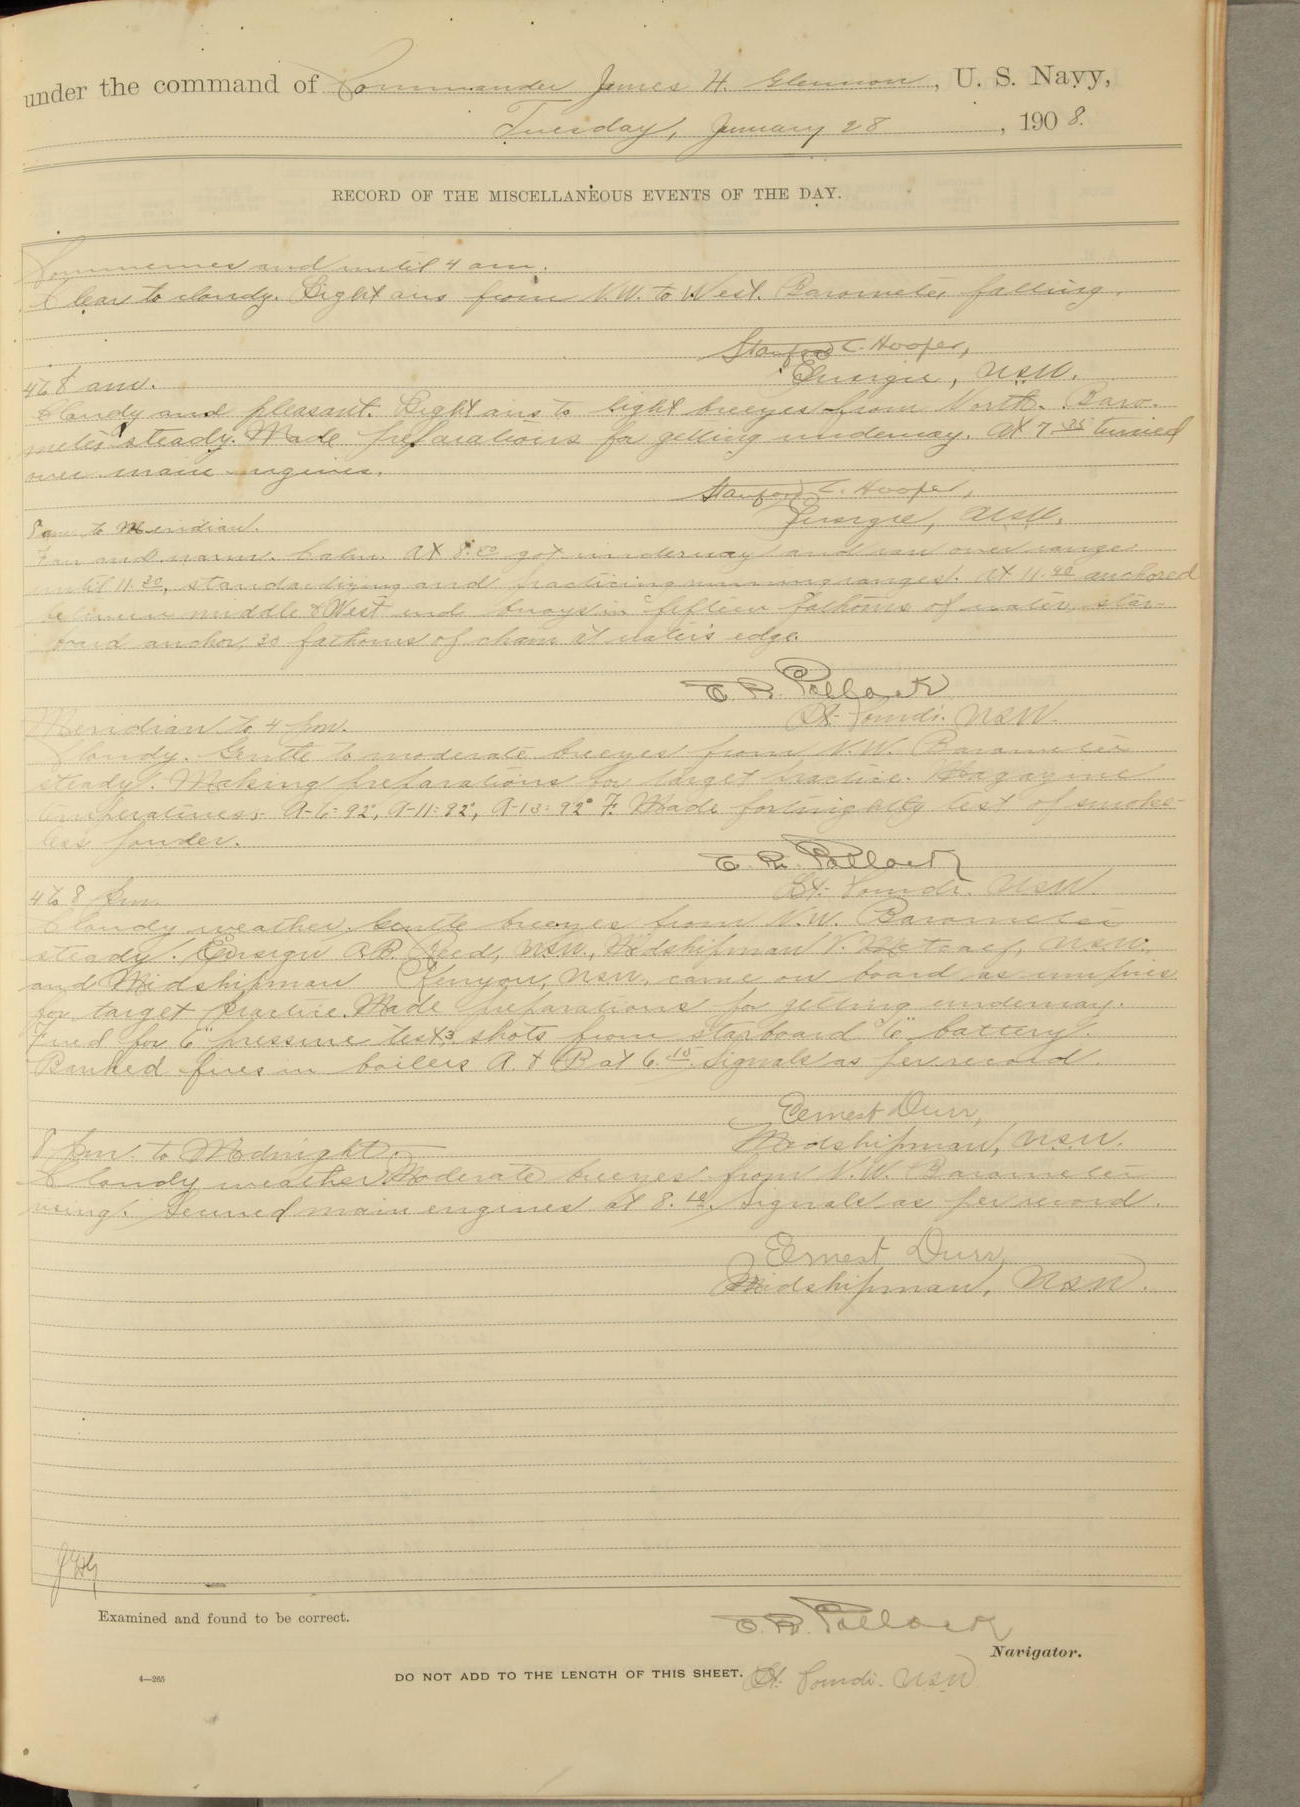 under the command of Commander James H. Glennon, U. S. Navy,
Tuesday, January 28, 1908.
RECORD OF THE MISCELLANEOUS EVENTS OF THE DAY.
Commences and until 4 am.
Clear to cloudy. Light airs from N.W. to West. Barometer falling.
Stanford C. Hooper,
Ensign, USN.
4 to 8 am.
Cloudy and pleasant. Light airs to light breezes from North. Baro-
meter steady. Made preparations for getting underway. At 7.35 turned
over main engines.
Stanford C. Hooper,
Ensign, USN.
8 am to Meridian.
Fair and warm. Calm. At 8.50 got underway and ran over range
until 11.30, standardizing and practicing running ranges. At 11.40 anchored
between middle & West end buoys in fifteen fathoms of water, star-
board anchor, 30 fathoms of chain at water's edge.
E. R. Pollock
Lt. Comdr. USN.
Meridian to 4 pm.
Cloudy. Gentle to moderate breezes from N.W. Barometer
steady. Making preparations for target practice. Magazine
temperatures:- A-6-92°, A-11-82°, A-13-92° F. Made fortnightly test of smoke-
less powder.
E. R. Pollock
Lt. Comdr. USN.
4 to 8 pm.
Cloudy weather. Gentle breezes from N.W. Barometer
steady. Ensign A.B. Reed, USN., Midshipman V. Metcalf, USN.,
and Midshipman Kenyon, USN., came on board as umpires
for target practice. Made preparations for getting underway.
Fired for 6" pressure test 3 shots from starboard 6" battery.
Banked fires in boilers A. & B at 6.10. Signals as per record.
Ernest Durr,
Midshipman, USN.
8 pm. to Midnight.
Cloudy weather. Moderate breezes from N.W. Barometer
rising. Secured main engines at 8.10. Signals as per record.
Ernest Durr,
Midshipman, USN.
JHG
Examined and found to be correct.
E. R. Pollock
Navigator.
4—265
DO NOT ADD TO THE LENGTH OF THIS SHEET.
Lt. Comdr. USN